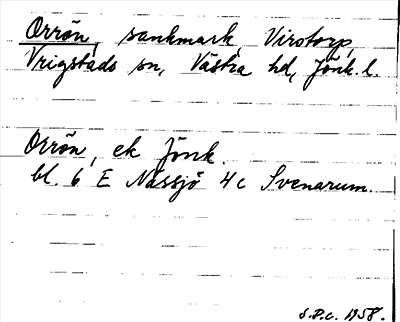 Orrön, sankmark, Virstorp,
Vrigstads sn, Västra hd, Jönk. l.
Orrön, ek Jönk.
bl. 6 E Nässjö 4c Svenarum.
S.P.C. 1958.